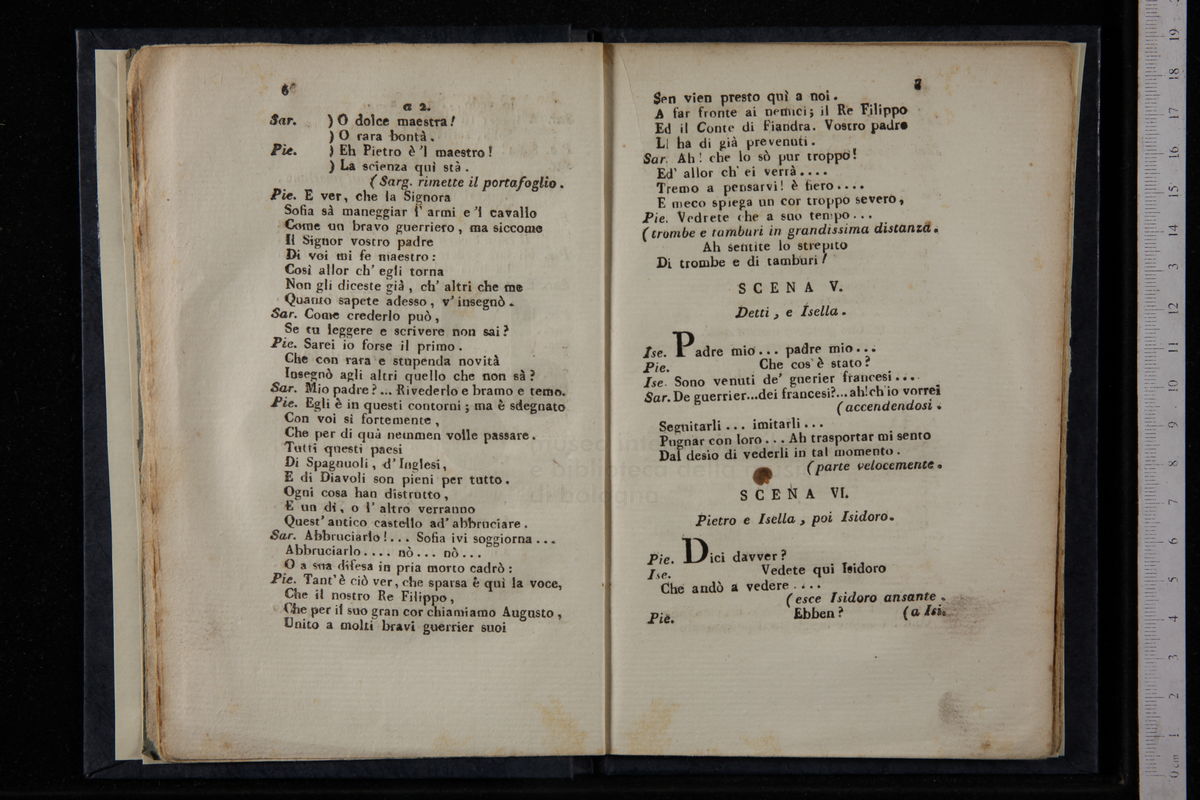 6
a 2.
Sar. ) O dolce maestra!
) O rara bontà.
Pie. ) Eh Pietro è 'l maestro!
) La scienza quì stà.
(Sarg. rimette il portafoglio.
Pie. E ver, che la Signora
Sofia sà maneggiar l' armi e 'l cavallo
Come un bravo guerriero, ma siccome
Il Signor vostro padre
Di voi mi fe maestro:
Così allor ch' egli torna
Non gli diceste già, ch' altri che me
Quanto sapete adesso, v' insegnò.
Sar. Come crederlo può,
Se tu leggere e scrivere non sai?
Pie. Sarei io forse il primo.
Che con rara e stupenda novità
Insegnò agli altri quello che non sà?
Sar. Mio padre?... Rivederlo e bramo e temo.
Pie. Egli è in questi contorni; ma è sdegnato
Con voi sì fortemente,
Che per di quà nemmen volle passare.
Tutti questi paesi
Di Spagnuoli, d' Inglesi,
E di Diavoli son pieni per tutto.
Ogni cosa han distrutto,
E un dì, o l' altro verranno
Quest' antico castello ad' abbruciare.
Sar. Abbruciarlo!... Sofia ivi soggiorna...
Abbruciarlo.... nò... nò...
O a sua difesa in pria morto cadrò:
Pie. Tant' è ciò ver, che sparsa è quì la voce,
Che il nostro Re Filippo,
Che per il suo gran cor chiamiamo Augusto,
Unito a molti bravi guerrier suoi
7
Sen vien presto quì a noi.
A far fronte ai nemici; il Re Filippo
Ed il Conte di Fiandra. Vostro padre
Li ha di già prevenuti.
Sar. Ah! che lo sò pur troppo!
Ed' allor ch' ei verrà....
Tremo a pensarvi! è fiero....
E meco spiega un cor troppo severo,
Pie. Vedrete che a suo tempo...
(trombe e tamburi in grandissima distanza.
Ah sentite lo strepito
Di trombe e di tamburi!
SCENA V.
Detti, e Isella.
Ise. Padre mio... padre mio...
Pie. Che cos' è stato?
Ise. Sono venuti de' guerier francesi....
Sar. De guerrier...dei francesi?...ah!ch'io vorrei
(accendendosi.
Seguitarli... imitarli...
Pugnar con loro... Ah trasportar mi sento
Dal desio di vederli in tal momento.
(parte velocemente.
SCENA VI.
Pietro e Isella, poi Isidoro.
Pie. Dici davver?
Ise. Vedete qui Isidoro
Che andò a vedere....
(esce Isidoro ansante.
Pie. Ebben? (a Isi.
museo inte
biblioteca
di bologna
0 cm 1 2 3 4 5 6 7 8 9 10 11 12 13 14 15 16 17 18 19